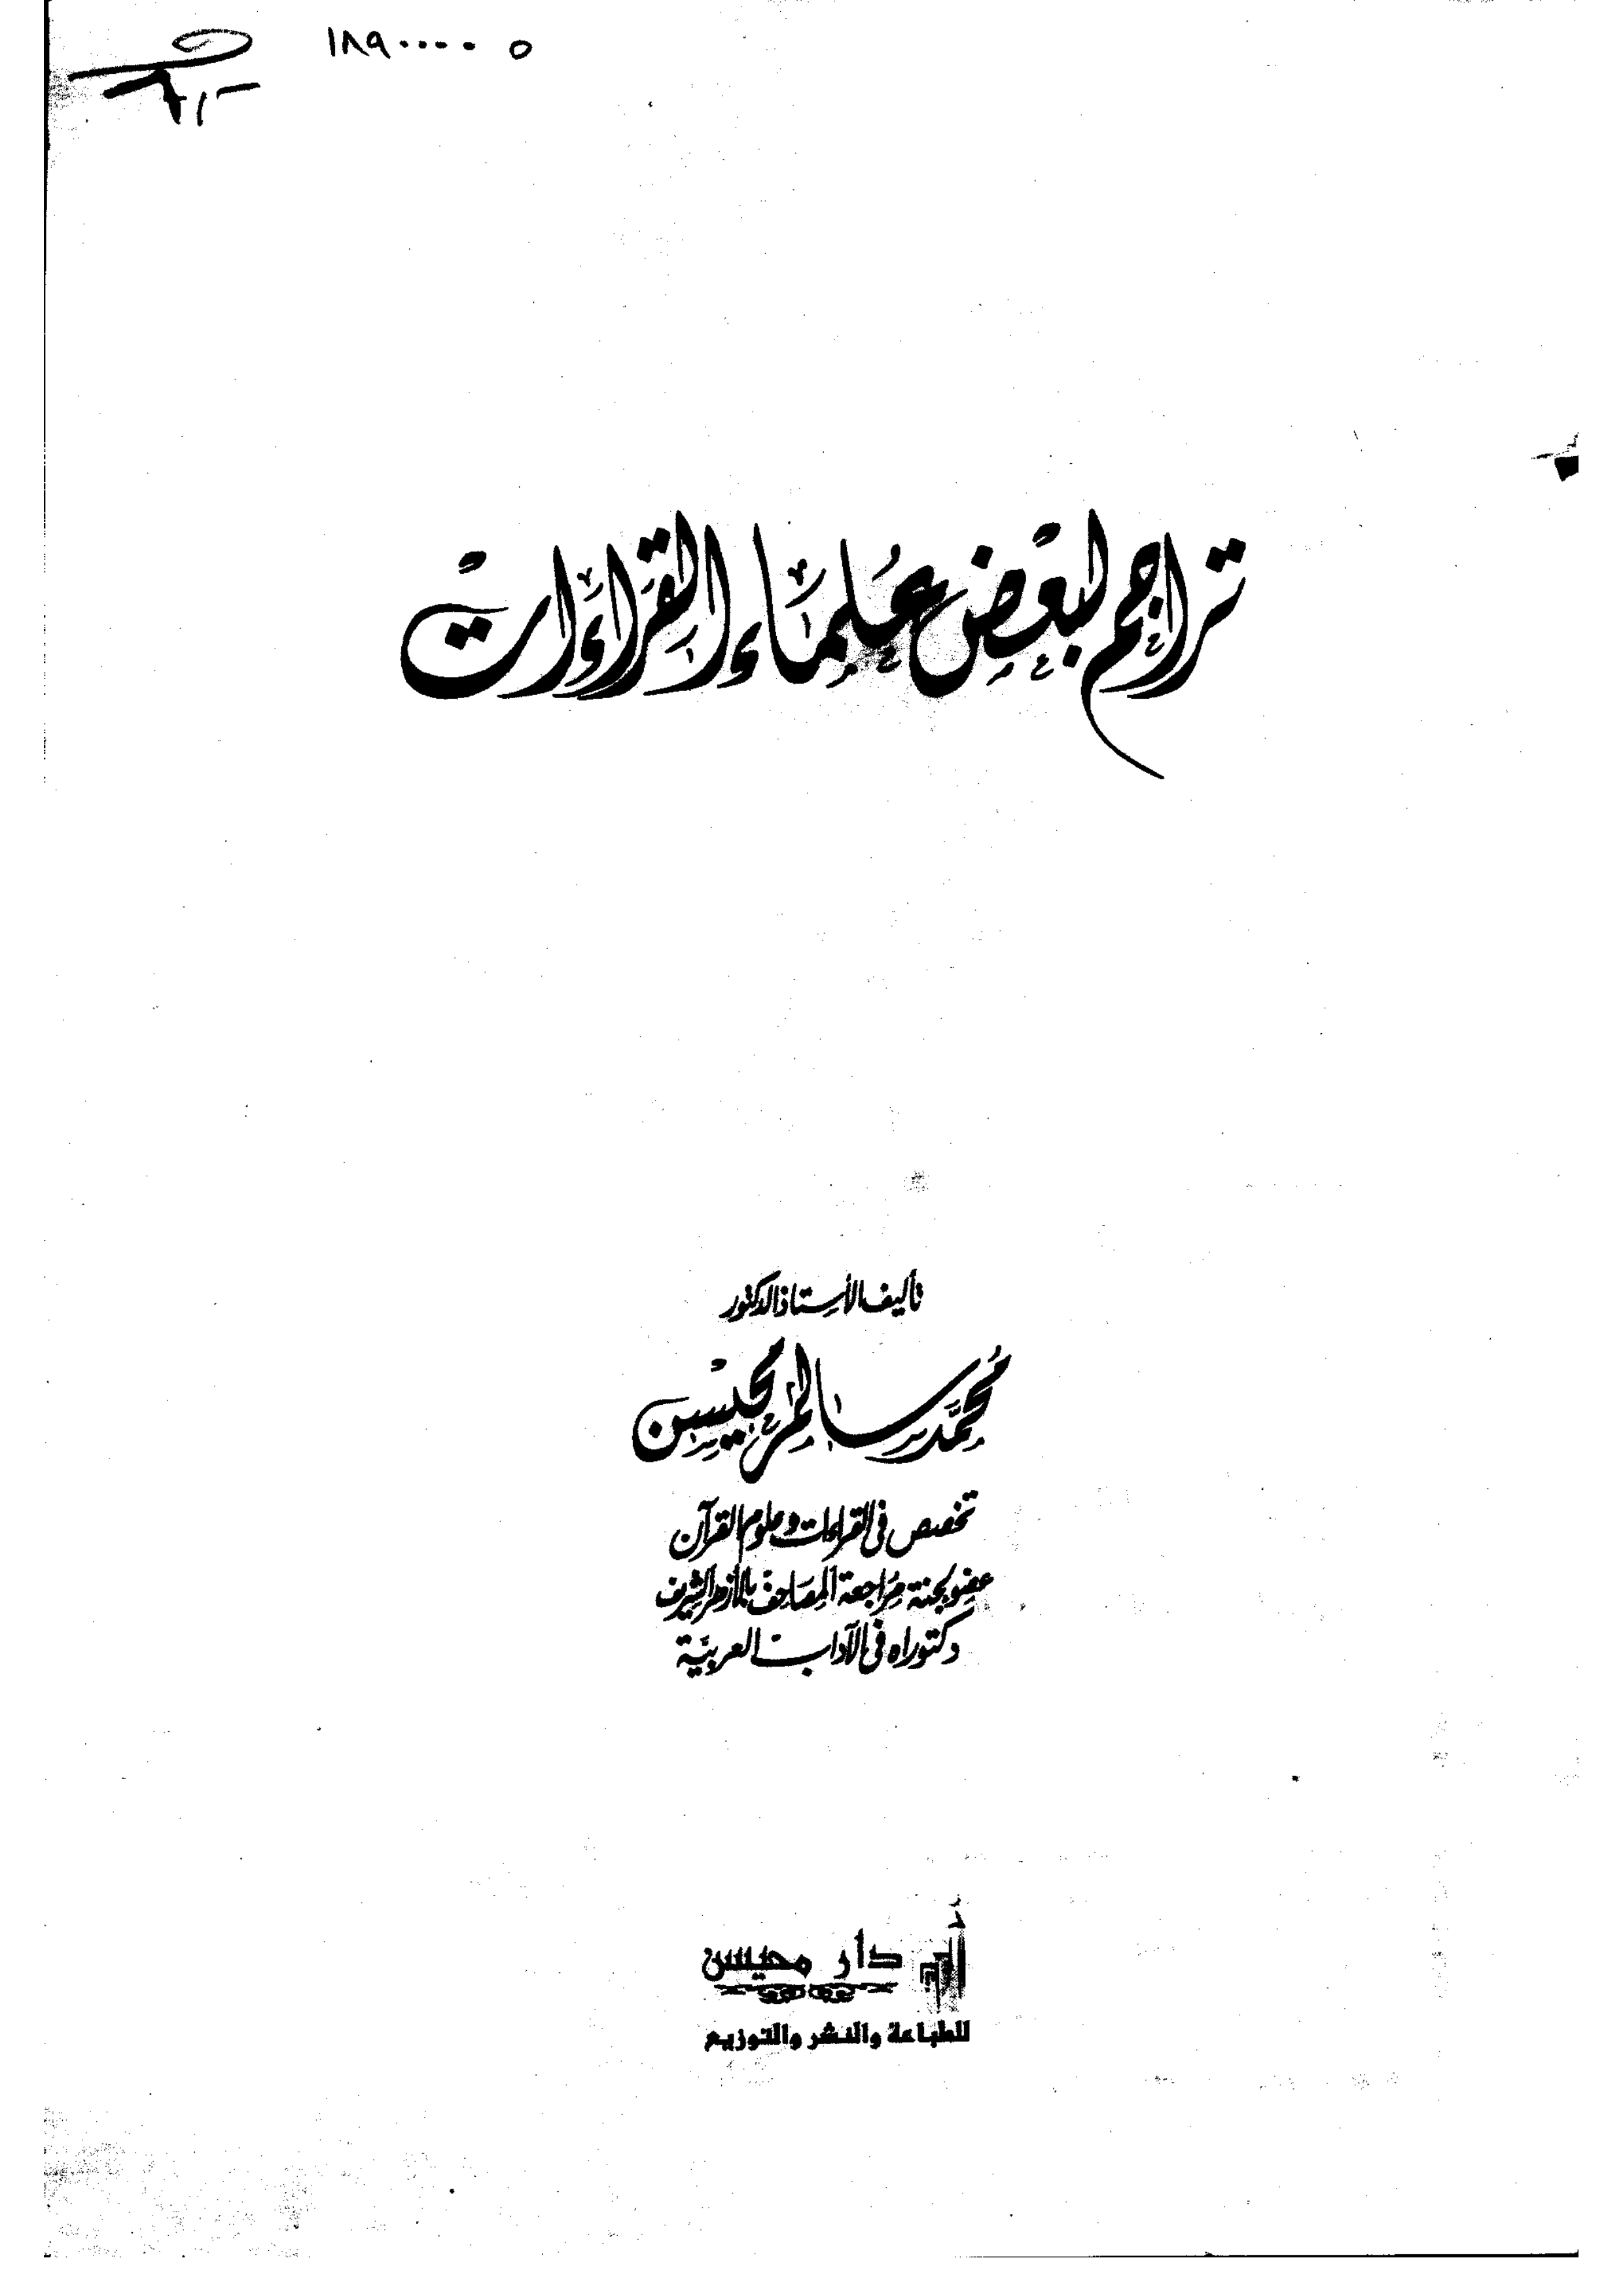 ١٨٩٠٠٠٠٠ ٥
تراجم لبعض علماء القراءات
تأليف الأستاذ الدكتور
محمد سالم محيسن
تخصص في القراءات وعلوم القرآن
عضو لجنة مراجعة المصاحف بالأزهر الشريف
دكتوراه في الآداب العربية
دار محيسن
للطباعة والنشر والتوزيع